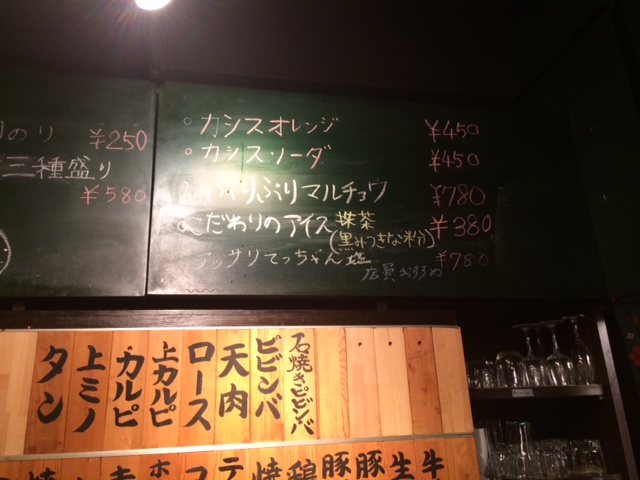 のり ¥250
三種盛り
¥580
カシスオレンジ ¥450
カシスソーダ ¥450
ぷりぷりマルチョウ ¥780
こだわりのアイス 抹茶 ¥380
(黒みつきな粉)
アッサリてっちゃん塩 ¥780
店員おすすめ
石焼きビビンバ
ビビンバ
天肉
ロース
上カルビ
カルビ
上ミノ
タン
牛
生
豚
豚
鶏
焼
テ
コ
ホ